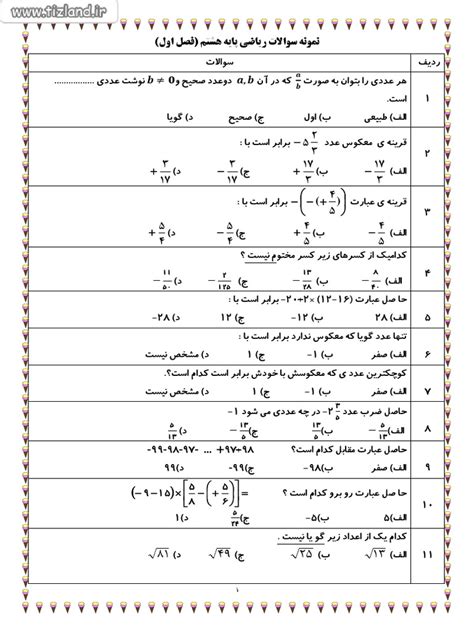 www.tizland.ir
نمونه سوالات ریاضی پایه هشتم (فصل اول)
ردیف سوالات
۱ هر عددی را بتوان به صورت a/b که در آن a,b دوعدد صحیح و b ≠ 0 نوشت عددی ................. است.
الف) طبیعی ب) اول ج) صحیح د) گویا
۲ قرینه ی معکوس عدد −۵ ۲/۳ برابر است با :
الف) −۱۷/۳ ب) +۱۷/۳ ج) −۳/۱۷ د) +۳/۱۷
۳ قرینه ی عبارت −(−(+۴/۵)) برابر است با :
الف) −۴/۵ ب) +۴/۵ ج) −۵/۴ د) +۵/۴
۴ کدامیک از کسرهای زیر کسر مختوم نیست ؟
الف) −۸/۴۰ ب) −۱۳/۲۸ ج) −۲/۱۲۵ د) −۱۱/۵۰
۵ حاصل عبارت (۱۶-۱۲) ×۲+۲۰- برابر است با :
الف) ۲۸ ب) ۱۲- ج) ۱۲ د) ۲۸-
۶ تنها عدد گویا که معکوس ندارد برابر است با :
الف) صفر ب) ۱- ج) ۱ د) مشخص نیست
۷ کوچکترین عدد ی که معکوسش با خودش برابر است کدام است؟
الف) صفر ب) ۱- ج) ۱ د) مشخص نیست
۸ حاصل ضرب عدد ۲ ۳/۵- در چه عددی می شود ۱-
الف) −۱۳/۵ ب) ۱۳/۵ ج) −۵/۱۳ د) ۵/۱۳
۹ حاصل عبارت مقابل کدام است؟ -۹۹-۹۸-۹۷- ... +۹۷+۹۸
الف) ۹۸- ب) ج) ۹۹- د) ۹۹
۱۰ حاصل عبارت رو برو کدام است ؟ (−۹−۱۵)×[۵/۸ − (+۵/۶)]=
الف) ۵ ب) ۵- ج) ۵/۲۴ د) ۱
۱۱ کدام یک از اعداد زیر گویا نیست .
الف) √۱۳ ب) √۲۵ ج) √۴۹ د) √۸۱
۱